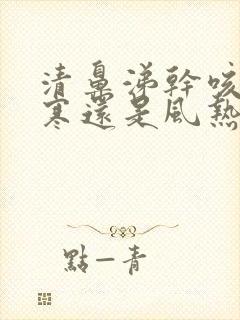 清鼻涕幹咳
寒還是風熱
點一青